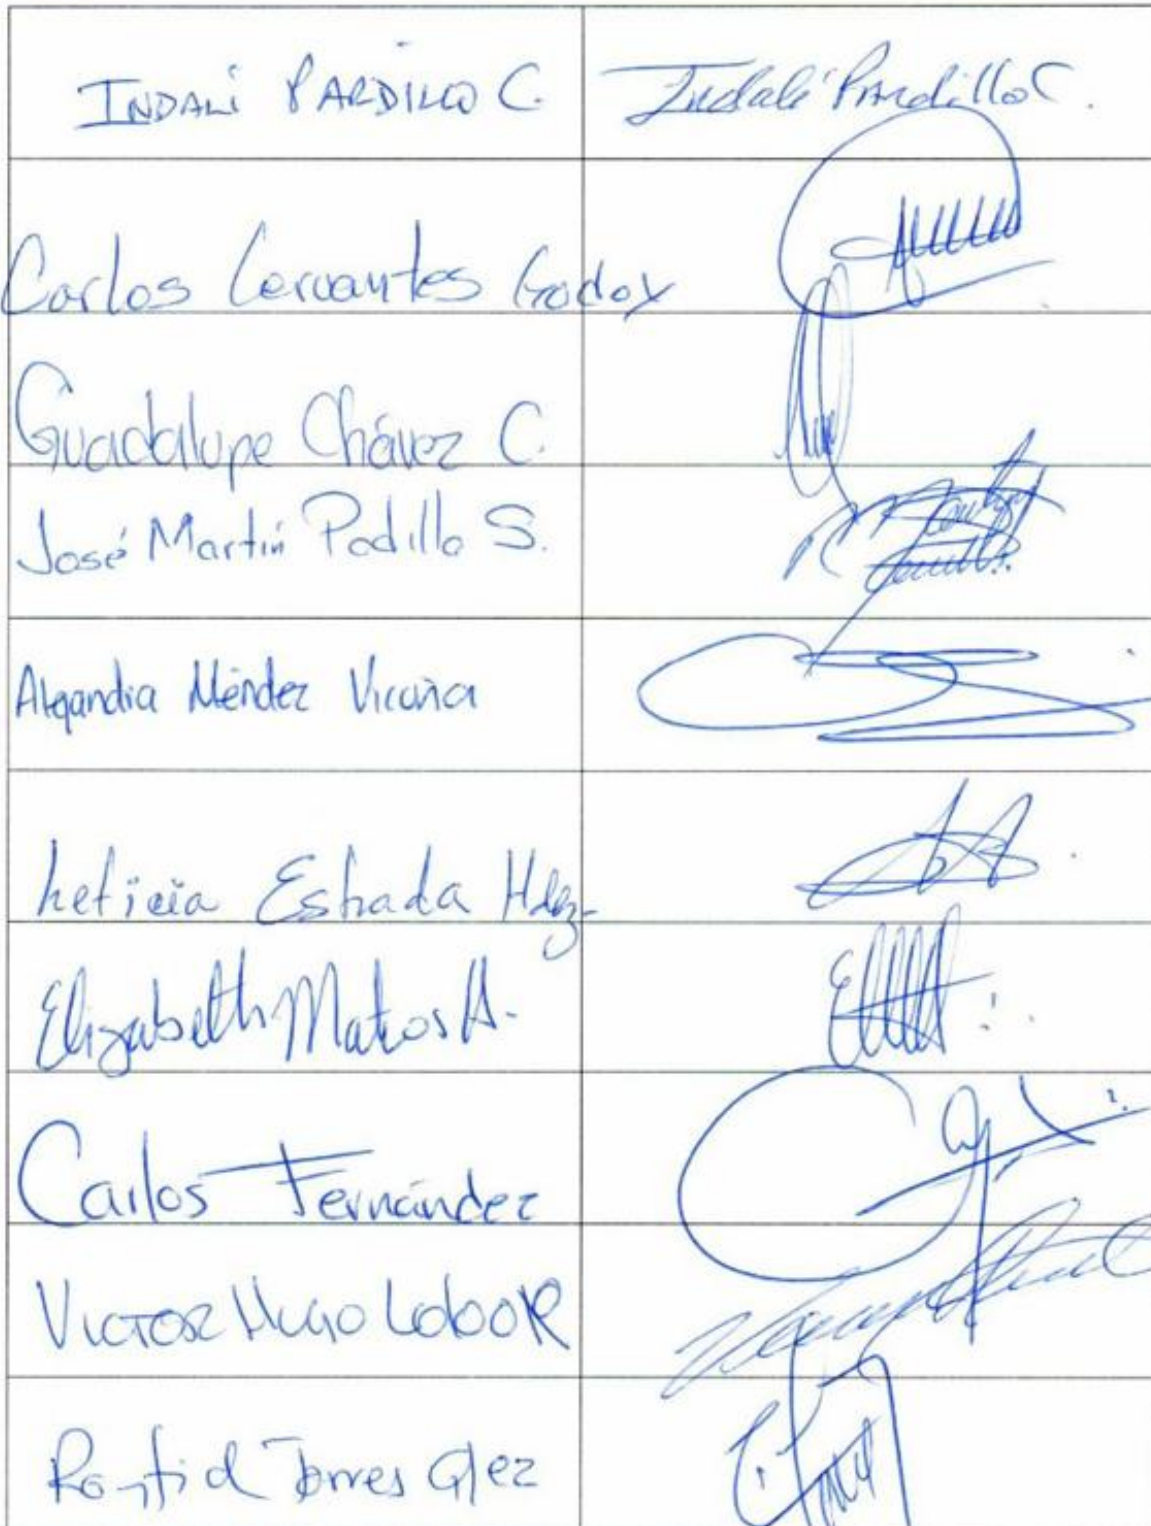 INDALI PARDILLO C. Indalí Pardillo C.
Carlos Cervantes Godoy
Guadalupe Chávez C.
José Martín Padilla S.
Alejandra Méndez Vicuña
Leticia Estrada Hdez
Elizabeth Matos H.
Carlos Fernández
VICTOR HUGO Lobo R
Torres Glez